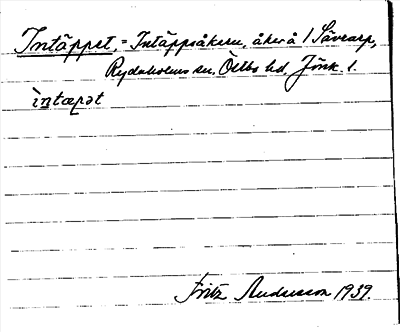 Intäppet, = Intäppsåkern, åker å 1 Sävrarp,
Rydaholms sn, Östbo hd, Jönk. l.
ìntæpət
Fritz Andersson 1939.